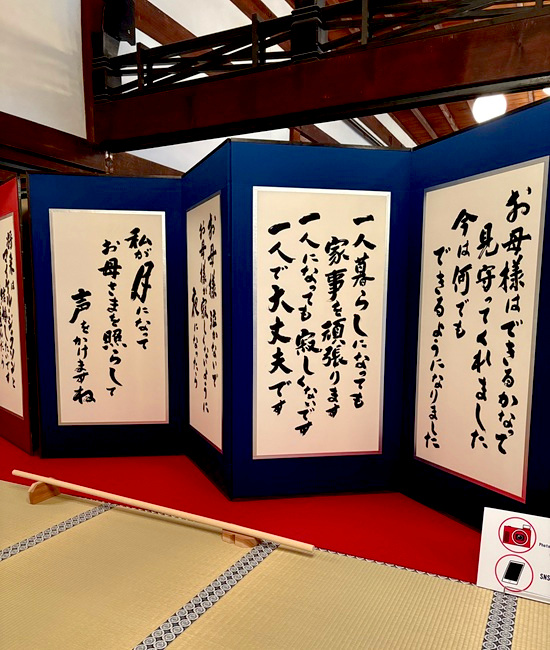 お母様はできるかなって
見守ってくれました
今は何でも
できるようになりました
一人暮らしになっても
家事を頑張ります
一人になっても寂しくないです
一人で大丈夫です
お母様 泣かないで
お母様が寂しくないように
夜になったら
私が月になって
お母さまを照らして
声をかけますね
Photo
SNS